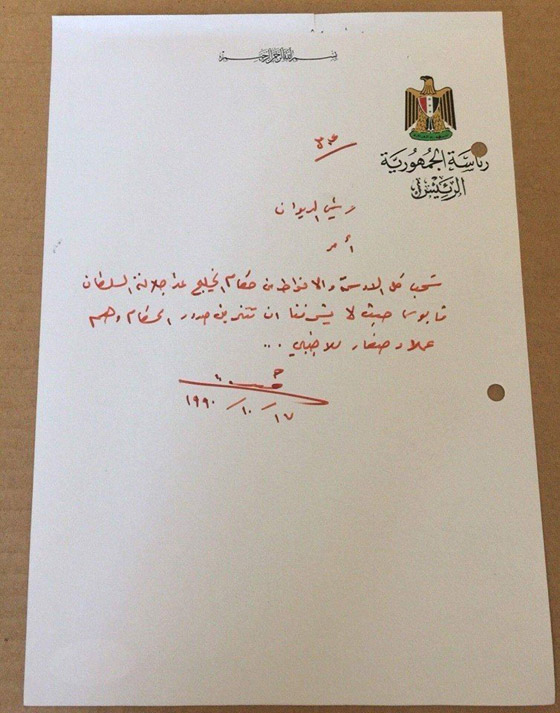 بسم الله الرحمن الرحيم
رئاسة الجمهورية
الرئيس
رئيس الديوان
أمر
تسحب كل الاوسمة والانواط من حكام الخليج عدا جلالة السلطان
قابوس حيث لا يشرفنا ان تتزين صدور الحكام وهم
عملاء صغار للاجنبي ...
١٧ / ١٠ / ١٩٩٠